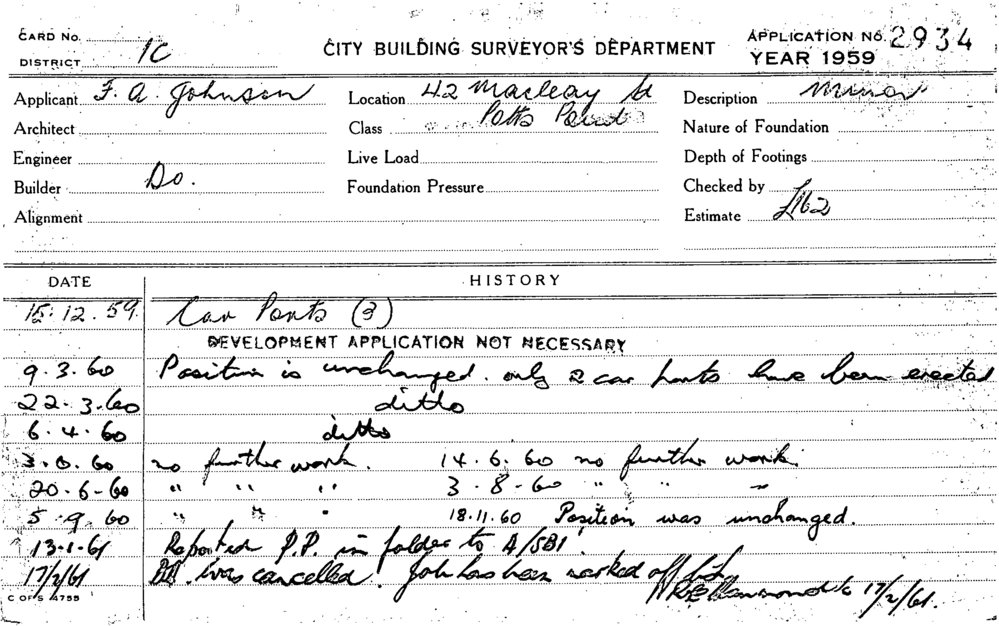 CARD No.
DISTRICT 1C
CITY BUILDING SURVEYOR'S DEPARTMENT
APPLICATION No. 2934
YEAR 1959
Applicant F. A. Johnson
Location 42 Macleay St
Potts Point
Description Minor
Architect
Class
Nature of Foundation
Engineer
Live Load
Depth of Footings
Builder Do.
Foundation Pressure
Checked by
Alignment
Estimate £162
DATE HISTORY
15.12.59 Car Ports (3)
DEVELOPMENT APPLICATION NOT NECESSARY
9.3.60 Position is unchanged. only 2 car ports have been erected
22.3.60 ditto
6.4.60 ditto
3.6.60 no further work. 14.6.60 no further work.
20.6.60 " " " 3.8.60 " " "
5.9.60 " " " 18.11.60 Position was unchanged.
13.1.61 Reported P.P. in folder to A/SBI
17/2/61 was cancelled. Job has been marked off
17/2/61.
C OF S 4755